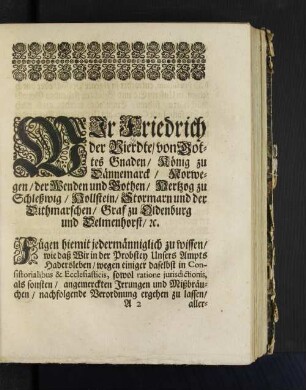 WIr Friedrich
der Vierdte / von Got-
tes Gnaden / König zu
Dännemarck / Norwe-
gen / der Wenden und Gothen / Hertzog zu
Schleßwig / Hollstein / Stormarn und der
Dithmarschen / Graf zu Oldenburg
und Delmenhorst / ꝛc.
Fügen hiemit jedermänniglich zu wissen /
wie daß Wir in der Probstey Unsers Ampts
Hadersleben / wegen einiger daselbst in Con-
sistorialibus & Ecclesiasticis, sowol ratione jurisdictionis,
als sonsten / angemerckten Irrungen und Mißbräu-
chen / nachfolgende Verordnung ergehen zu lassen /
A 2 aller-